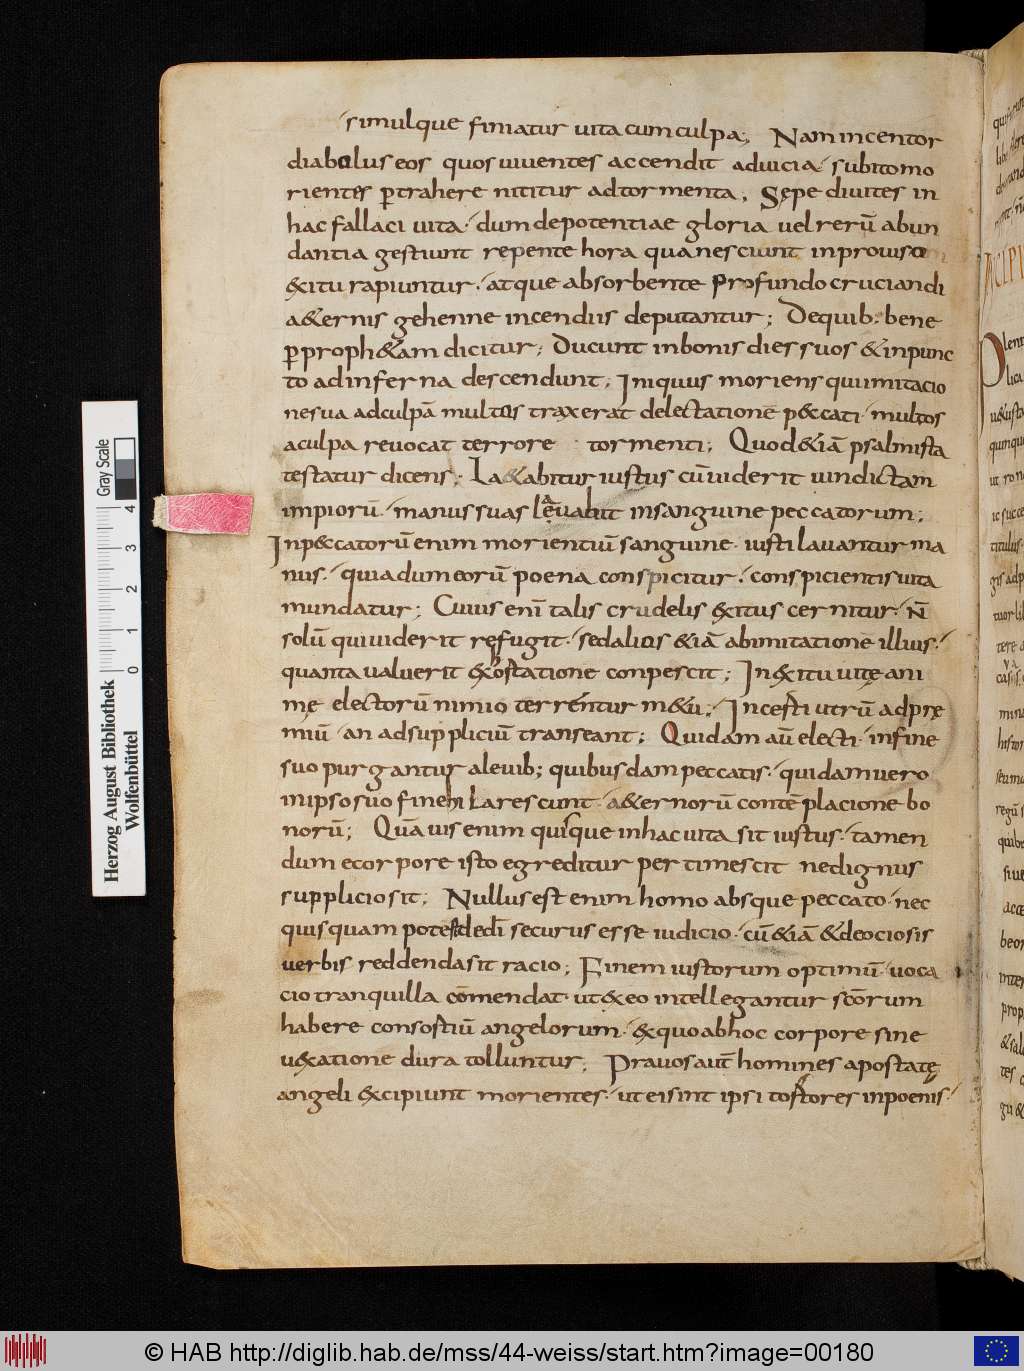 simulque finiatur uita cum culpa; Nam incentor
diabolus eos quos uiuentes accendit ad uicia· subito mo
rientes ptrahere nititur ad tormenta; Sępe diuites in
hac fallaci uita· dum de potentiae gloria uel rerū abun
dantia gestiunt repente hora qua nesciunt inprouiso
&itu rapiuntur· atque absorbente profundo cruciandi
a&ernis gehenne incendiis deputantur; De quib· bene
p proph&am dicitur; Ducunt in bonis dies suos & in punc
to ad inferna descendunt; Iniquus moriens qui imitacio
ne sua ad culpā multos traxerat delectatione p&cati· multos
a culpa reuocat terrore tormenti; Quod &iā psalmista
testatur dicens; La&abitur iustus cū uiderit uindictam
impiorū· manus suas leuabit in sanguine peccatorum;
In p&catorū enim morientiū sanguine· iusti lauantur ma
nus· quia dum eorū poena conspicitur· conspicientis uita
mundatur; Cuius enī talis crudelis &itus cernitur· n̄
solū qui uiderit refugit· sed alios &iā ab imitatione illius·
quanta ualuerit &ostatione conpescit; In &itu uitę ani
mę electorū nimio terrentur m&u; Incerti utrū ad pрę
miū· an ad suppliciū transeant; Quidam aū electi· in fine
suo purgantur a leuib; quibusdam peccatis· quidam uero
in ipso suo fine hilarescunt· a&ernorū contēplacione bo
norū; Quāuis enim quisque in hac uita sit iustus· tamen
dum e corpore isto egreditur pertimescit ne dignus
supplicio sit; Nullus est enim homo absque peccato· nec
quisquam potest de dei securus esse iudicio· cū &iā & de ociosis
uerbis reddenda sit racio; Finem iustorum optimū· uoca
cio tranquilla cōmendat· ut & eo intellegantur scōrum
habere consortiū angelorum· & quo ab hoc corpore sine
u&atione dura tolluntur; Prauos aut̄ homines apostatę
angeli &cipiunt morientes· ut eis sint ipsi tortores in poenis·
Gray Scale
0 1 2 3 4
Herzog August Bibliothek
Wolfenbüttel
© HAB http://diglib.hab.de/mss/44-weiss/start.htm?image=00180